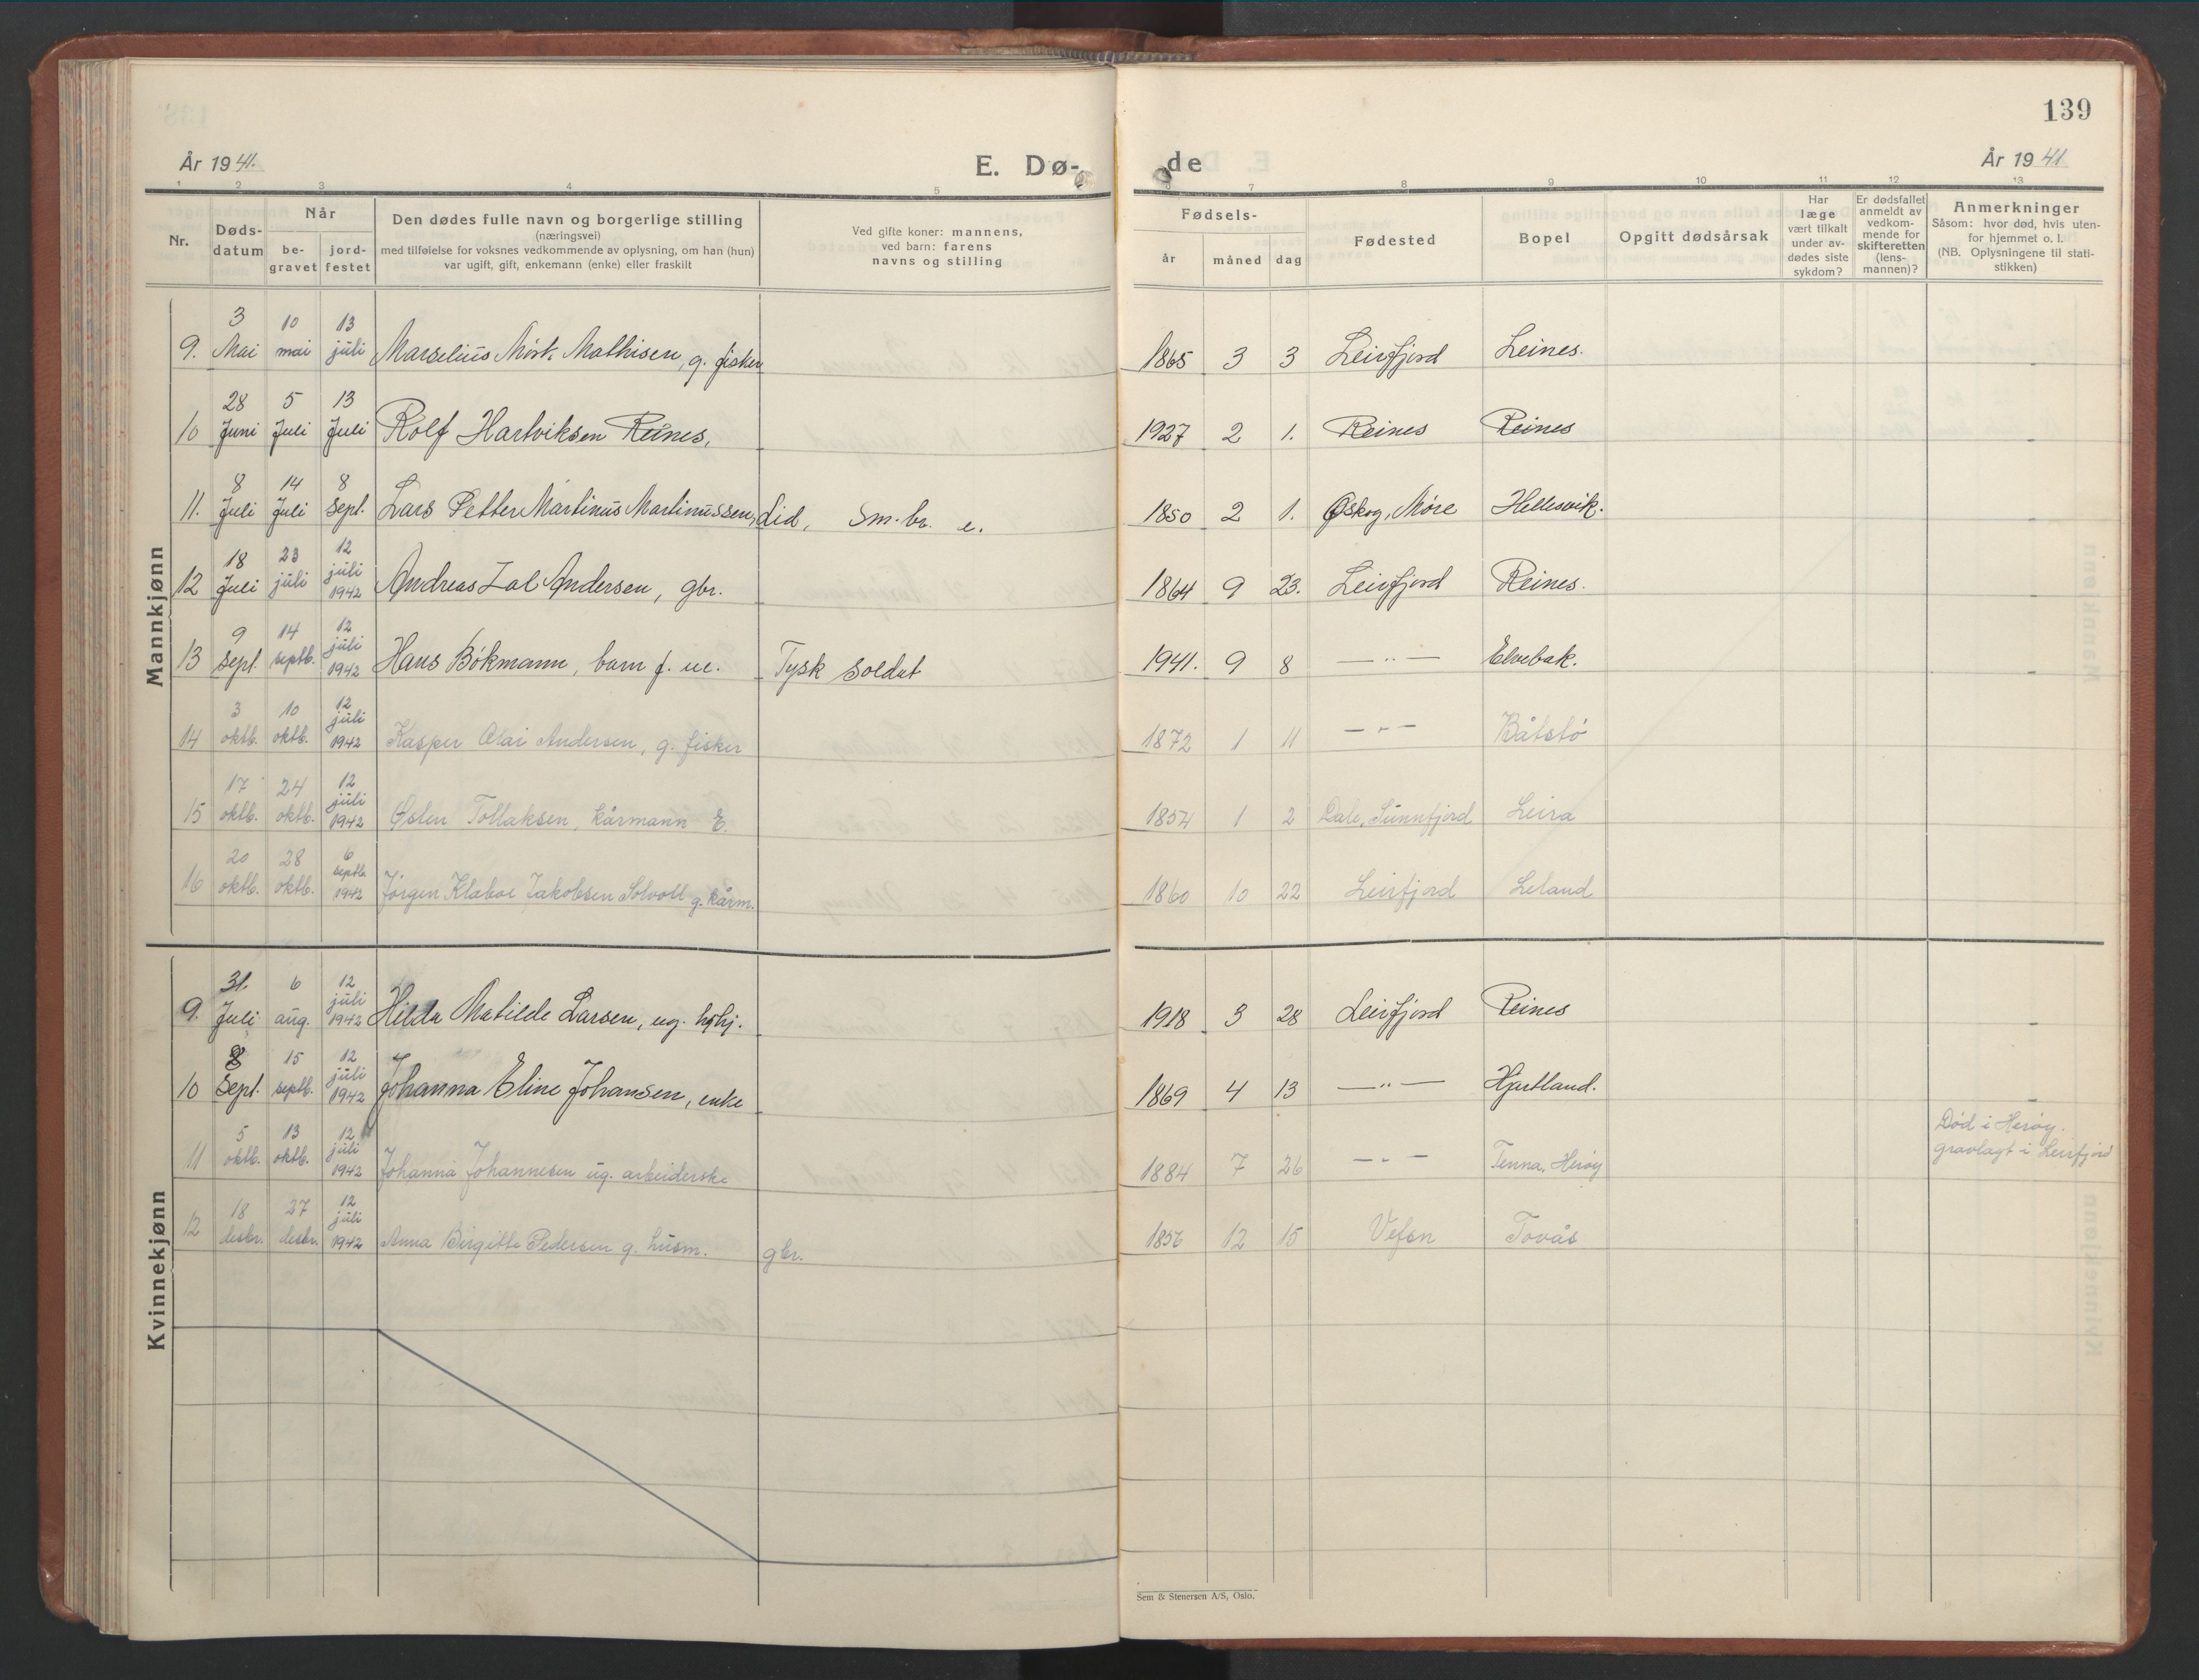 139
År 1941.
E. Dø-
de
År 1941
1 2 3 4 5 7 8 9 10 11 12 13
Nr.
Døds-
datum
Når
be-
gravet
jord-
festet
Den dødes fulle navn og borgerlige stilling
(næringsvei)
med tilføielse for voksnes vedkommende av oplysning, om han (hun)
var ugift, gift, enkemann (enke) eller fraskilt
Ved gifte koner: mannens,
ved barn: farens
navns og stilling
Fødsels-
år
måned
dag
Fødested
Bopel
Opgitt dødsårsak
Har
læge
vært tilkalt
under av-
dødes siste
sykdom?
Er dødsfallet
anmeldt av
vedkom-
mende for
skifteretten
(lens-
mannen)?
Anmerkninger
Såsom: hvor død, hvis uten-
for hjemmet o. l.
(NB. Oplysningene til stati-
stikken)
Mannkjønn
3 10 13
9. Mai mai juli Marselius Mört. Mathisen, g. fisker 1865 3 3 Leirfjord Leines.
28 5 13
10 Juni Juli Juli Rolf Hartviksen Reines, 1927 2 1. Reines Reines
8 14 8
11. Juli Juli Sept. Lars Petter Martinus Martinussen, Lid, Sm. br. e. 1850 2 1. Øskog, Møre Hellesvik.
18 23 12
12 Juli juli juli 1942 Andreas Zal Andersen, gbr. 1864 9 23. Leirfjord Reines.
9 14 12
13 Sept. septb. juli 1942 Hans Bökmann, barn f. ue. Tysk soldat 1941. 9 8 — " — Elvebak.
3 10 12
14 oktb. oktb. juli 1942 Kasper Olai Andersen, g. fisker 1872 1 11 — " — Båtstö
17 24 12
15 oktb. oktb. juli 1942 Østen Tollaksen, kårmann E. 1854 1 2 Dale, Sunnfjord Leira
20 28 6
16 oktb. oktb. septb. 1942 Jörgen Klaboe Jakobsen Solvoll g. kårm. 1860 10 22 Leirfjord Leland
Kvinnekjønn
31. 6 12
9. Juli aug. juli 1942 Hilda Matilde Larsen, ug. hjhj. 1918 3 28 Leirfjord Reines
8 15 12
10 Sept. septb. juli 1942 Johanna Eline Johansen, enke 1869 4 13 — " — Hjartland.
5 13 12
11 oktb. oktb. juli 1942 Johanna Johannesen ug. arbeiderske 1884 7 26 — " — Tenna, Heröy Död i Heröy.
gravlagt i Leirfjord
18 27 12
12 desbr. desbr. juli 1942 Anna Birgitte Pedersen g. husm. gbr. 1856 12 15 Vefsn Tovås
Sem & Stenersen A/S, Oslo.